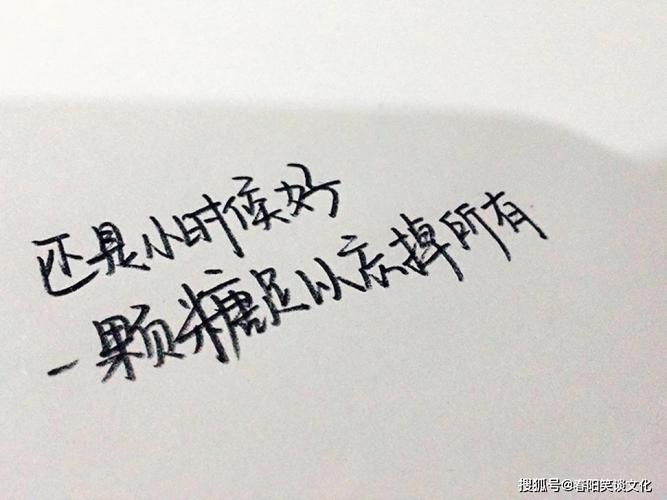 还是小时候好
一颗糖足以忘掉所有
搜狐号@春阳笑谈文化